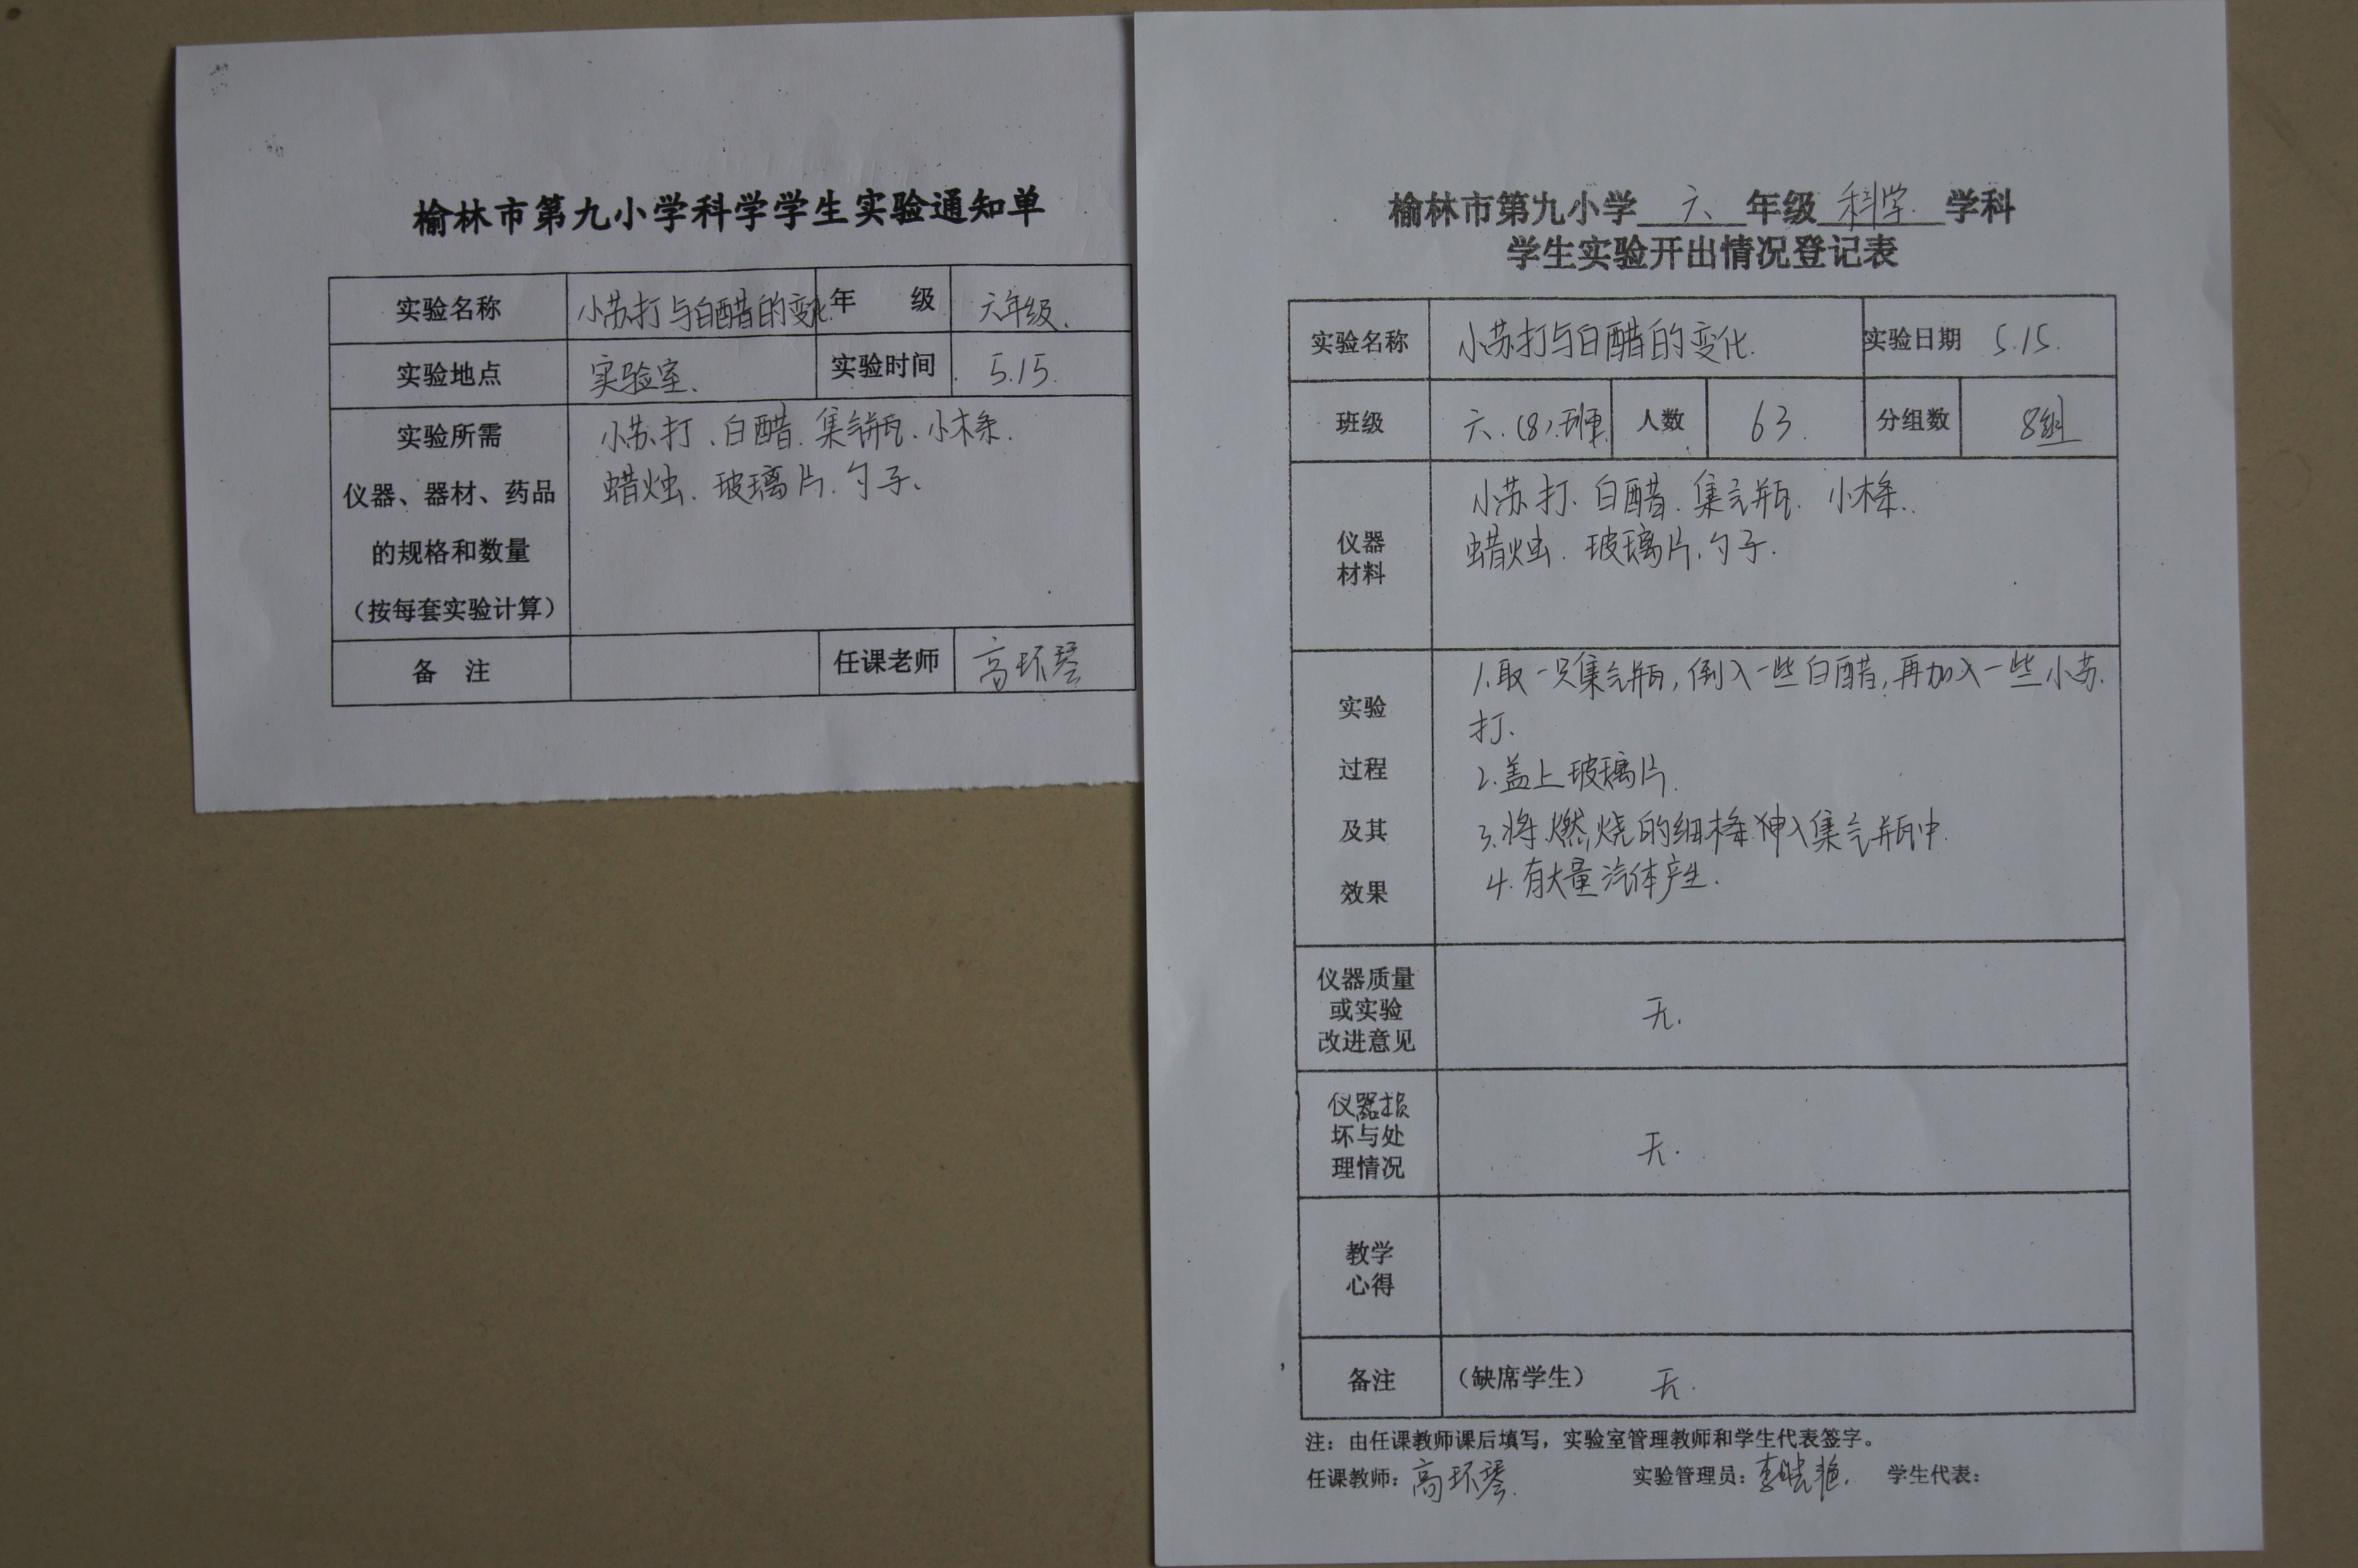 榆林市第九小学科学学生实验通知单
实验名称 小苏打与白醋的变化 年 级 六年级.
实验地点 实验室. 实验时间 5.15.
实验所需
仪器、器材、药品
的规格和数量
（按每套实验计算）
小苏打、白醋.集气瓶.小木条.
蜡烛、玻璃片.勺子、
备 注 任课老师 高环琴
榆林市第九小学 六 年级 科学 学科
学生实验开出情况登记表
实验名称 小苏打与白醋的变化. 实验日期 5.15.
班级 六.(8).班 人数 63. 分组数 8组
仪器
材料
小苏打.白醋.集气瓶.小木条.
蜡烛.玻璃片.勺子.
实验
过程
及其
效果
1.取一只集气瓶,倒入一些白醋,再加入一些小苏
打、
2.盖上玻璃片.
3.将燃烧的细木条伸入集气瓶中.
4.有大量汽体产生.
仪器质量
或实验
改进意见
无.
仪器损
坏与处
理情况
无.
教学
心得
备注 （缺席学生） 无.
注：由任课教师课后填写，实验室管理教师和学生代表签字。
任课教师：高环琴. 实验管理员：李晓艳. 学生代表：